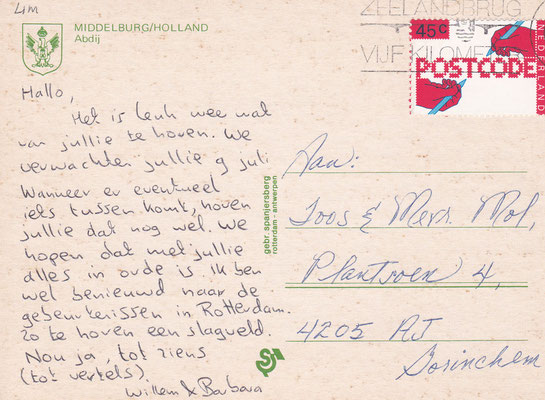 LIM
MIDDELBURG/HOLLAND
Abdij
ZEELANDBRUG
VIJF KILOMETER
45c
NEDERLAND
POSTCODE
Hallo,
Het is leuk weer wat
van jullie te horen. We
verwachten jullie 9 juli
Wanneer er eventueel
iets tussen komt, horen
jullie dat nog wel. We
hopen dat met jullie
alles in orde is. Ik ben
wel benieuwd naar de
gebeurkenissen in Rotterdam.
Zo te horen een slagveld.
Nou ja, tot ziens
(tot vertels).
Willem & Barbara
gebr. spanjersberg
rotterdam - antwerpen
Aan:
Joos & Mevr. Mol,
Plantsoen 4,
4205 AJ
Gorinchem